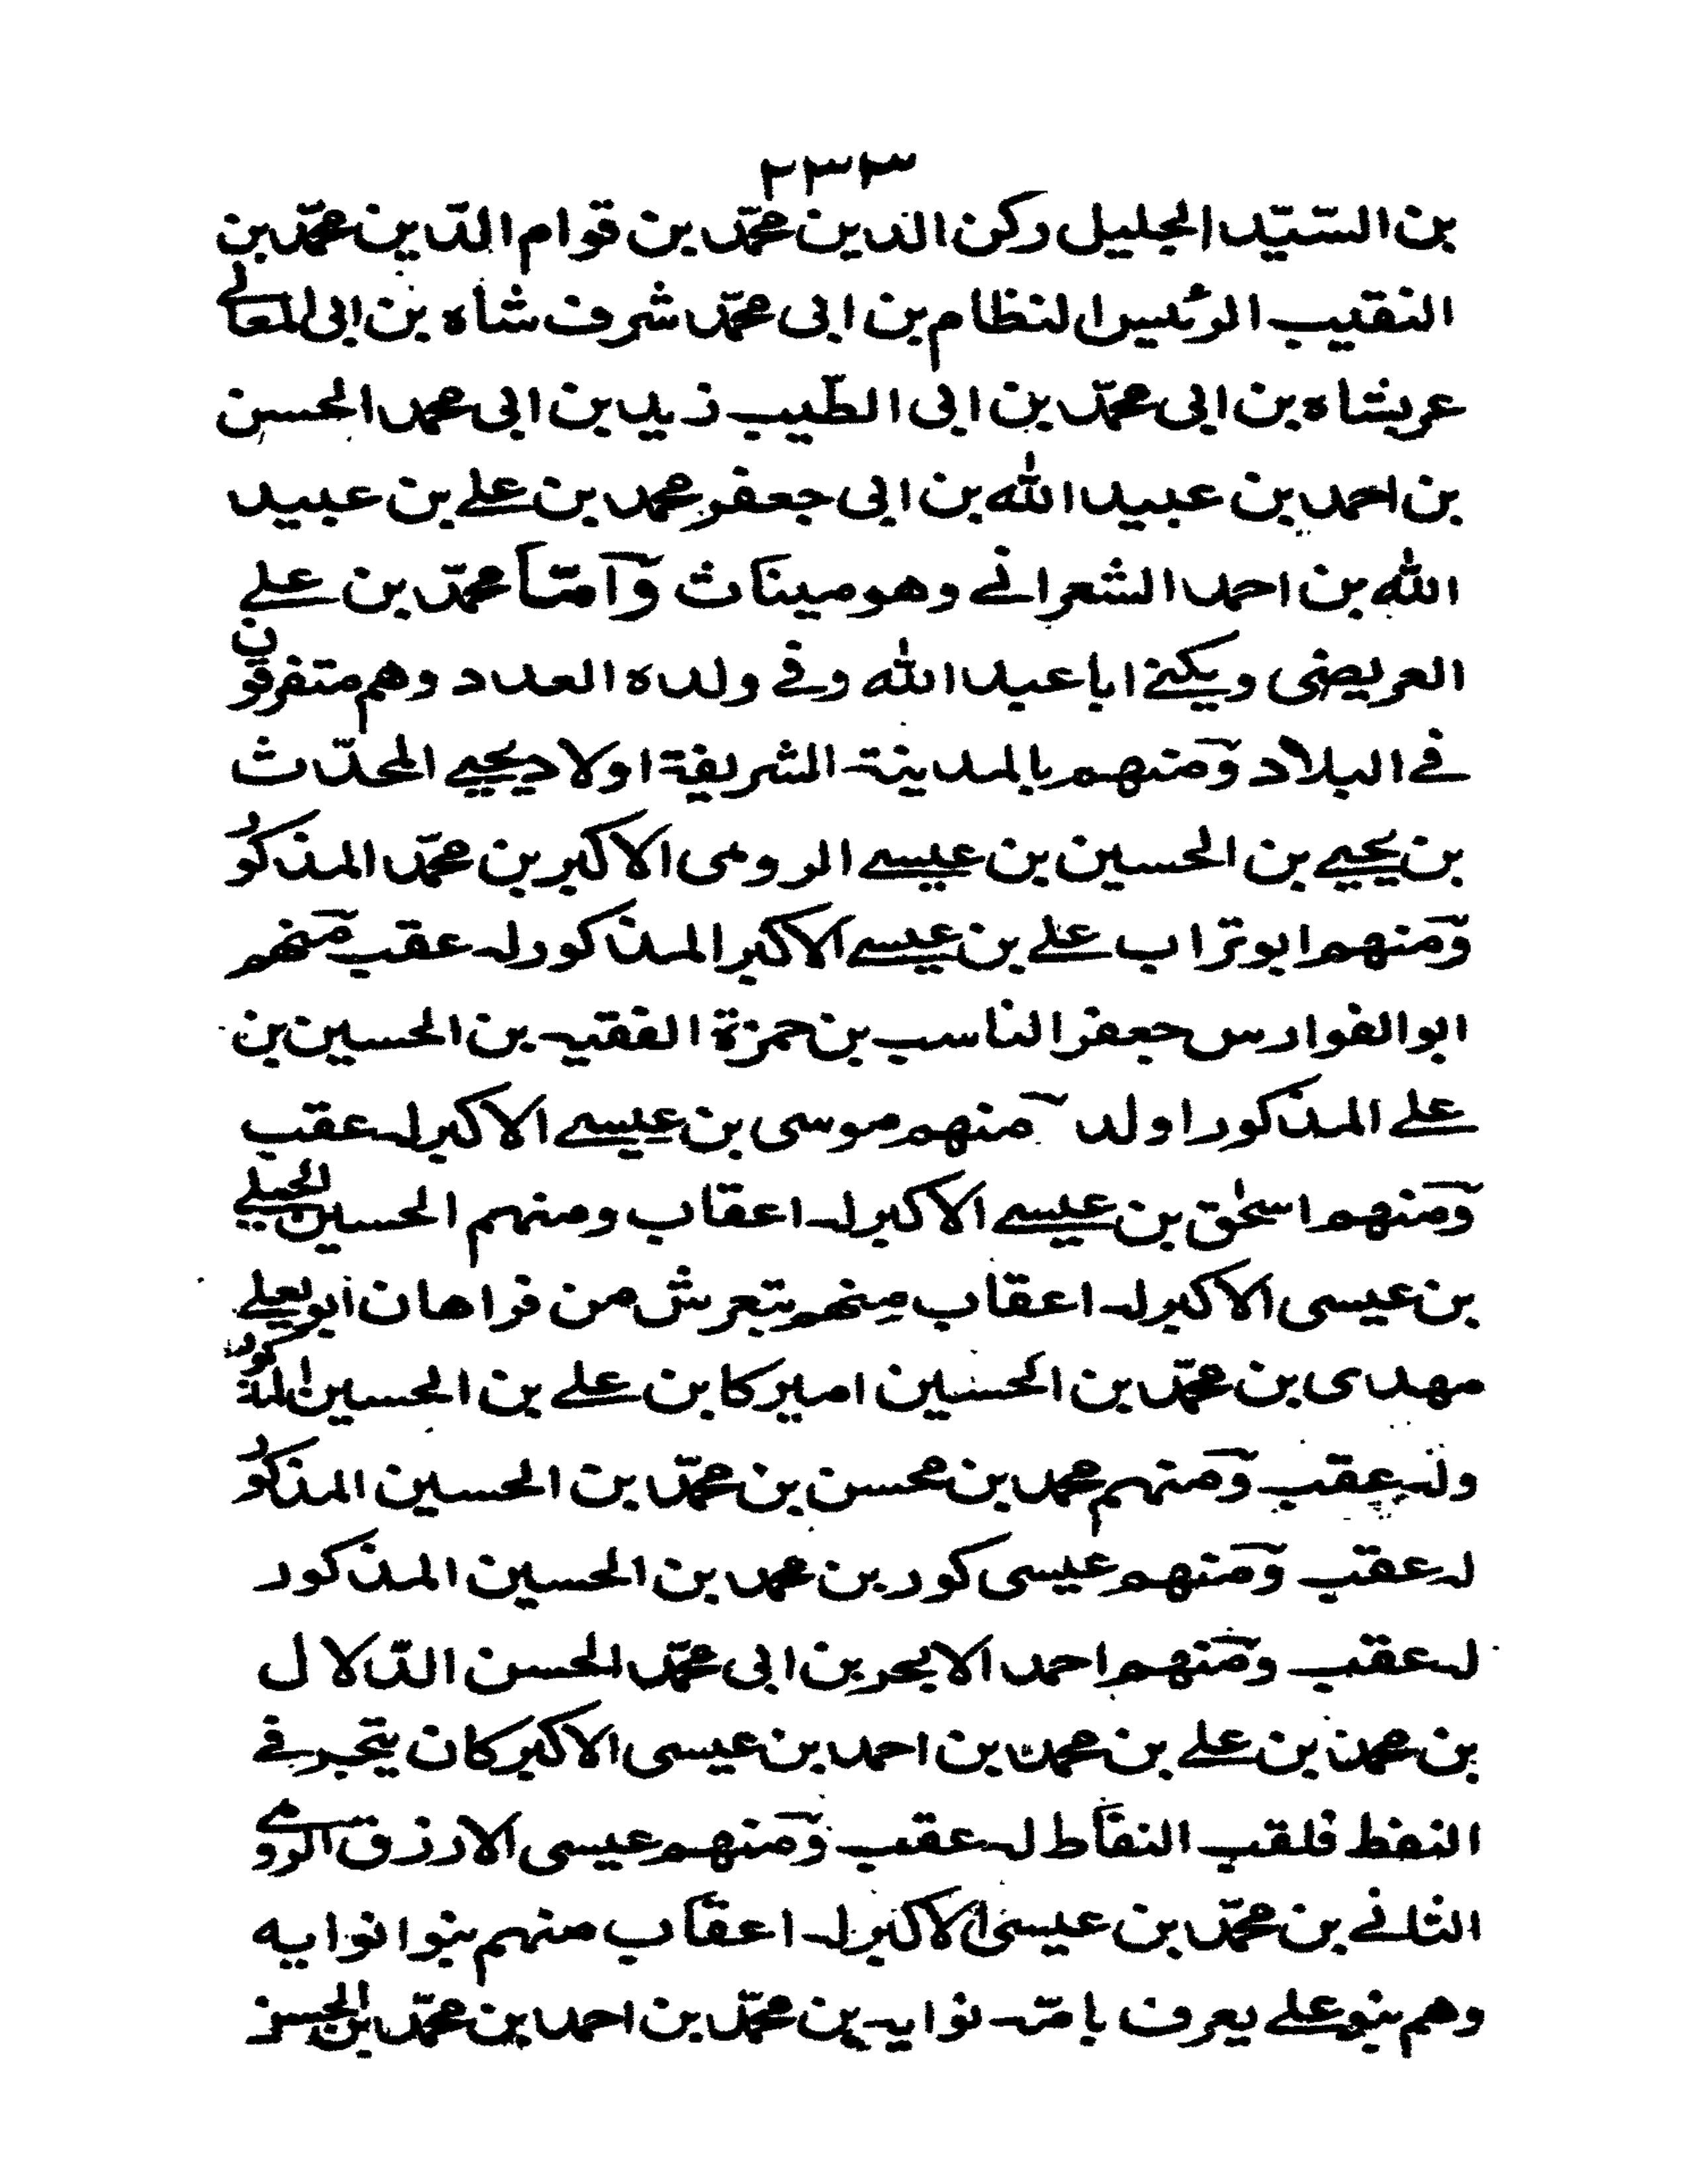 ٢٣٣
بن السّيّد الجليل ركن الدين محمّد بن قوام الدّين محمّد بن
النقيب الرئيس النظام بن ابى محمّد شرف شاه بن ابى المعالے
عربشاه بن ابى محمّد بن ابى الطّيب زيد بن ابى محمد الحسن
بن احمد بن عبيد الله بن ابى جعفر محمد بن علے بن عبيد
الله بن احمد الشعرانے وهو ميناث وَامّا محمّد بن علے
العريضى ويكنے ابا عبد الله وفے ولده العدد وهم متفرقون
فے البلاد ومنهم بالمدينة الشريفة اولاد يحيے المحدّث
بن يحيے بن الحسين بن عيسے الرومى الاكبر بن محمّد المذكور
ومنهم ابو تراب علے بن عيسے الاكبر المذكور له عقب منهم
ابو الفوارس جعفر الناسب بن حمزة الفقيه بن الحسين بن
علے المذكور اولد منهم موسى بن عيسے الاكبر له عقب
ومنهم اسحٰق بن عيسے الاكبر له اعقاب ومنهم الحسين الجبلے
بن عيسى الاكبر له اعقاب منهم بتعرش من فراهان ابو يعلے
مهدى بن محمّد بن الحسين اميركا بن علے بن الحسين المذكور
وله عقب ومنهم محمد بن محسن بن محمّد بن الحسين المذكور
له عقب ومنهم عيسى كور بن محمد بن الحسين المذكور
له عقب ومنهم احمد الابحر بن ابى محمّد الحسن الدّلال
بن محمد بن علے بن محمد بن احمد بن عيسى الاكبر كان يتجر فے
النفط فلقب النفاط له عقب ومنهم عيسى الارزق الرومے
الثانے بن محمّد بن عيسى الاكبر له اعقاب منهم بنوا نوايه
وهم بنو علے يعرف بامّه نوايه بن محمّد بن احمد بن محمّد بن الحسن